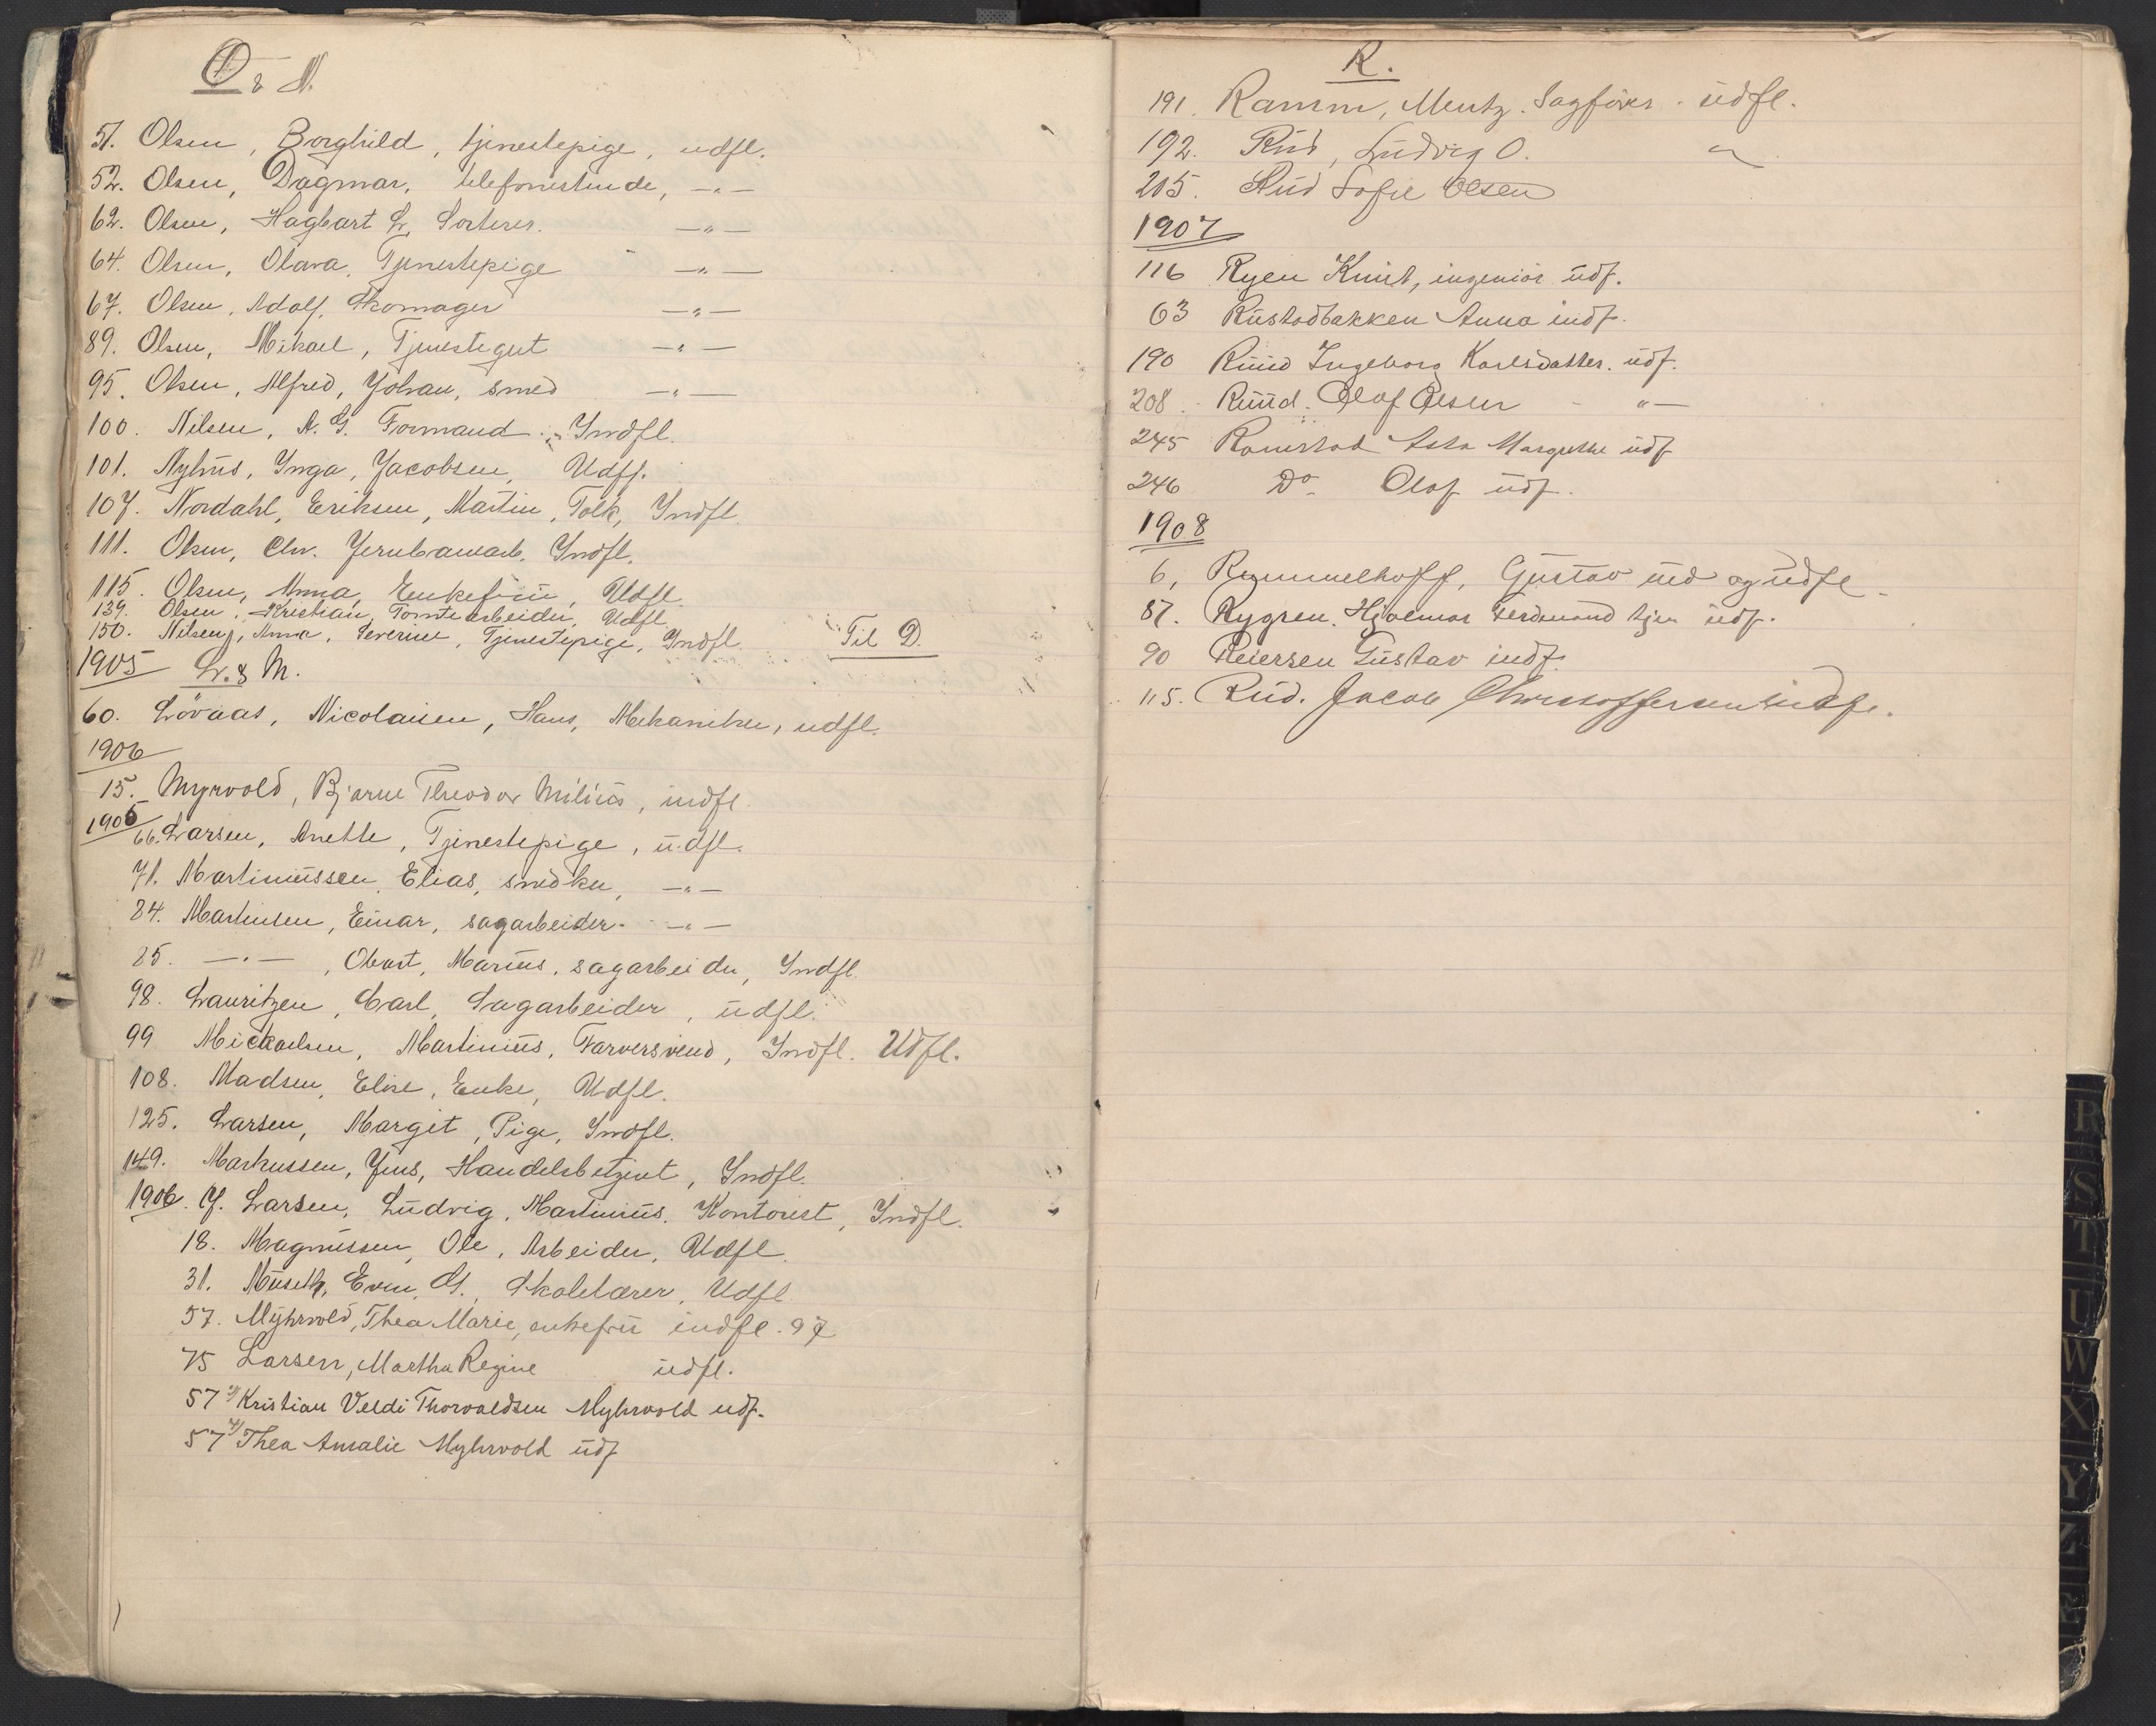 O & N.
51. Olsen, Borghild, tjenestepige, udfl.
52. Olsen, Dagmar, telefonistinde, —"—
62. Olsen, Hagbart L. Sorterer. —"—
64. Olsen, Olava, Tjenestepige —"—
67. Olsen, Adolf, Skomager —"—
89. Olsen, Mikael, Tjenestegut —"—
95. Olsen, Alfred, Johan, smed —"—
100. Nilsen, A. G. Formand Indfl.
101. Nyhus, Inga, Jacobsen, Udfl.
107. Nordahl, Eriksen, Martin, Tolk, Indfl.
111. Olsen, Chr. Jernbanearb. Indfl.
115. Olsen, Anna, Enkefrü, Udfl.
139. Olsen, Kristian, Tomtearbeider, Udfl.
150. Nilsen, Anna, Severine, Tjenestepige, Indfl. Til D.
1905 L. & M.
60. Lövaas, Nicolaisen, Hans, Mekaniker, udfl.
1906
15. Myrvold, Bjarne Theodor Milius, indfl.
1905
66. Larsen, Anette, Tjenestepige, udfl.
71. Martiniussen, Elias, snedker, —"—
84. Martinsen, Einar, sagarbeider. —"—
85. —"—, Obert, Marius, sagarbeider, Indfl.
98. Lauritzen, Carl, Sagarbeider, udfl.
99 Mickaelsen, Martinius, Farversvend, Indfl. Udfl.
108. Madsen, Elise, Enke, Udfl.
125. Larsen, Margit, Pige, Indfl.
149. Markussen, Jens, Handelsbetjent, Indfl.
1906. 7. Larsen, Ludvig, Martinius, Kontorist, Indfl.
18. Magnussen, Ole, Arbeider, Udfl.
31. Museth, Even, Skolelærer, Udfl.
57. Myhrvold, Thea Marie, enkefru indfl. 97
75 Larsen, Martha Regine udfl.
57 Kristian Veldi Thorvaldsen Myhrvold udf.
57 Thea Amalie Myhrvold udf
R.
191. Ramm, Mentz. Sagfører. udfl.
192. Rud, Ludvig O. "
205. Rud Sofie Olsen
1907
116 Ryen Knut, ingeniør udf.
63 Rustadbakken Anna indf.
190 Ruud Ingeborg Karlsdatter. udf.
208. Ruud. Olaf Olsen - "—
245 Ramstad Asta Margrethe udf
246 Do Olaf udf.
1908
6, Rummelhoff, Gustav ind og udfl.
87. Rygren. Hjalmar Ferdinand tjen udf.
90 Reiersen Gustav indf.
115. Rud. Jacob Christoffersen indfl.